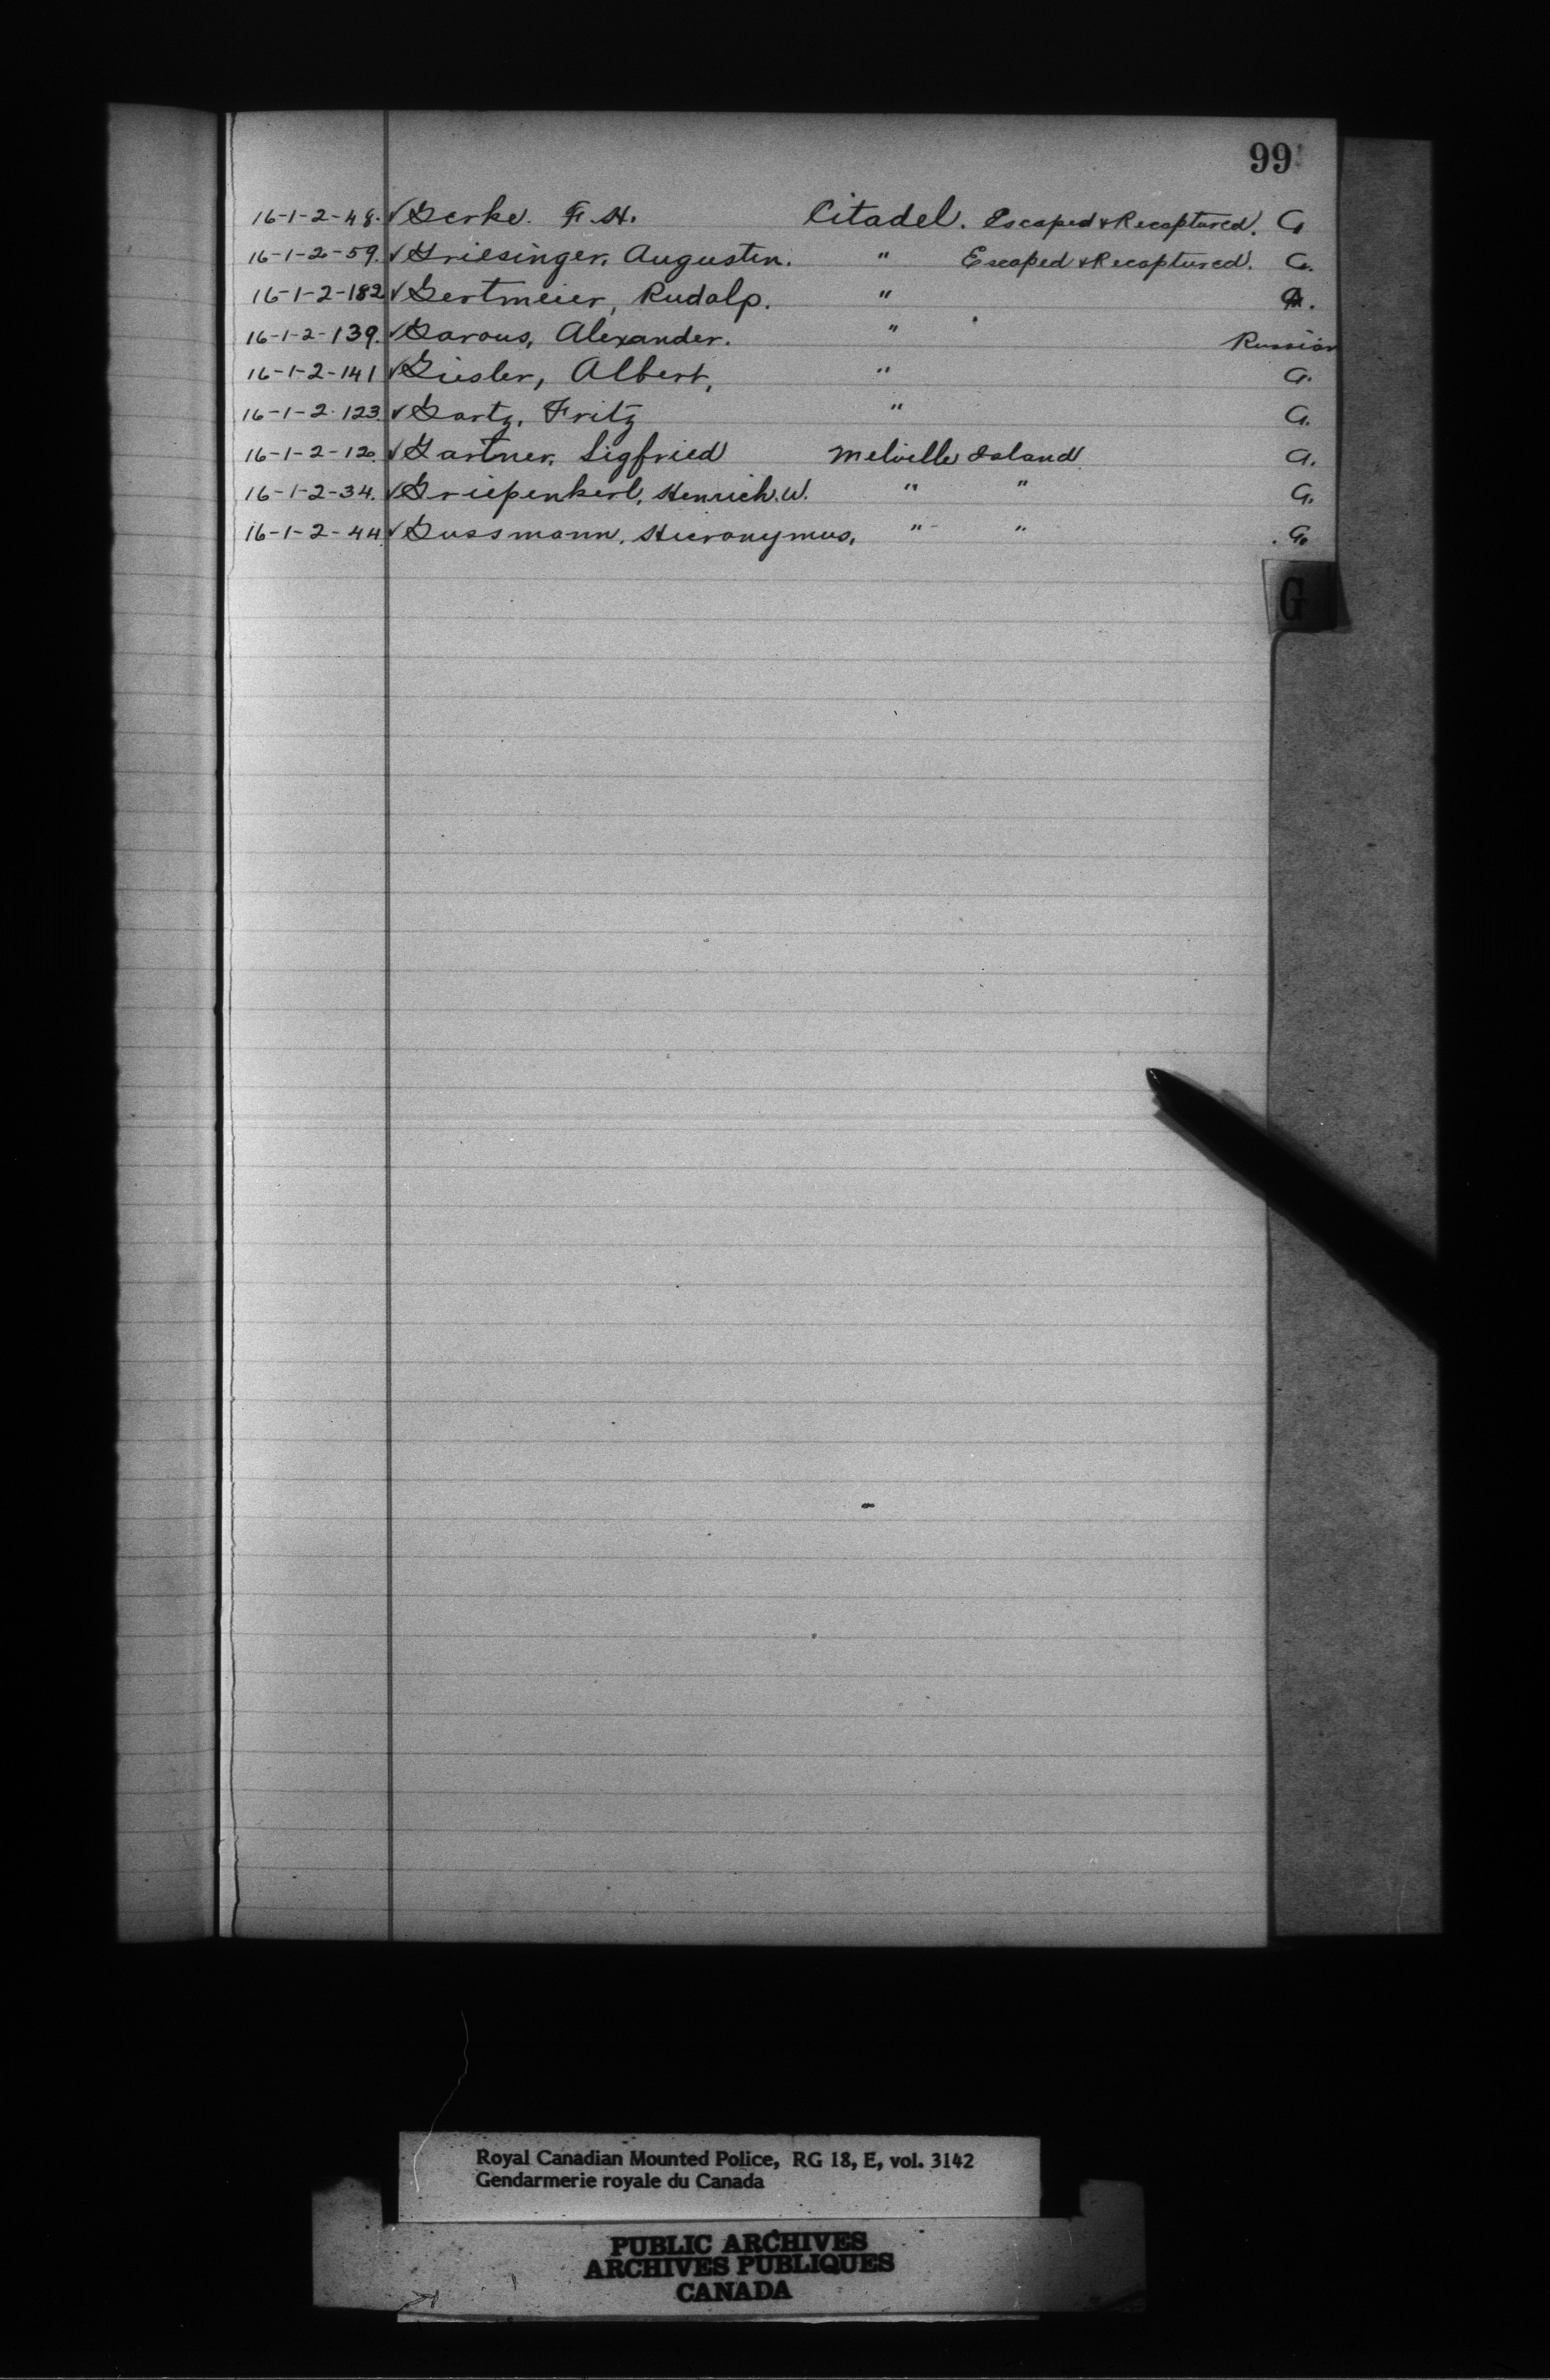 99
16-1-2-48. ✓ Gerke. F. H. Citadel. Escaped & Recaptured. G
16-1-2-59. ✓ Griesinger, Augusten. " Escaped & Recaptured. G.
16-1-2-182 ✓ Gertmeier, Rudolp. "
16-1-2-139. ✓ Garous, Alexander. " Russian
16-1-2-141 ✓ Giesler, Albert, " G.
16-1-2-123. ✓ Gartz, Fritz " G.
16-1-2-120. ✓ Gartner, Sigfried Melville Island G.
16-1-2-34. ✓ Griepenkerl, Henrich. W. " " G.
16-1-2-44. ✓ Gussmann, Hieronymus, " " G.
G
Royal Canadian Mounted Police, RG 18, E, vol. 3142
Gendarmerie royale du Canada
PUBLIC ARCHIVES
ARCHIVES PUBLIQUES
CANADA